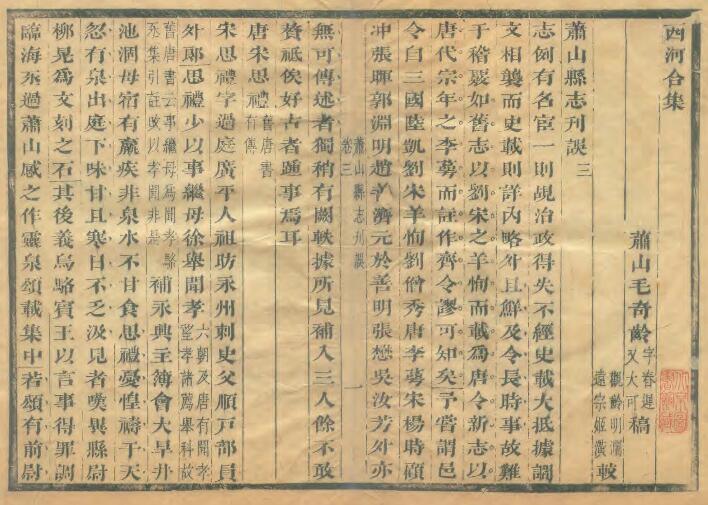 西河合集
蕭山毛奇齡字春遲又大可稿
遠宗姬潢較
蕭山縣志刊誤三
志例有名宦一則覘治政得失不經史載大抵據調
文相襲而史載則詳內略外且鮮及令長時事故難
于稽覈如舊志以劉宋之羊恂而載爲唐令新志以
唐代宗年之李蕚而註作齊令謬可知矣予嘗謂邑
令自三國陸凱劉宋羊恂劉僧秀唐李蕚宋楊時顧
冲張暉郭淵明趙善濟元於善明張懋吳汝芳外亦
蕭山縣志刊誤
卷三
一
無可傳述者獨稍有闕軼據所見補入三人餘不敢
贅祗俟好古者踵事焉耳
唐宋思禮舊唐書有傳
宋思禮字過庭廣平人祖昉永州刺史父順戸部員
外郎思禮少以事繼母徐舉聞孝六朝及唐有聞孝望孝諸薦舉科故
舊唐書云事繼母爲聞孝駱丞集引註改以孝聞非是補永興主簿會大旱井
池涸母宿有羸疾非泉水不甘食思禮憂惶禱于天
忽有泉出庭下味甘且寒日不乏汲見者嘆異縣尉
柳晃爲文刻之石其後義烏駱賓王以言事得罪調
臨海丞過蕭山感之作靈泉頌載集中若頌有前尉